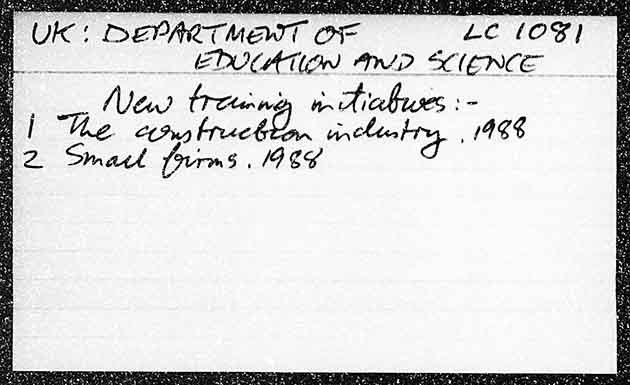 UK: DEPARTMENT OF LC 1081
EDUCATION AND SCIENCE
New training initiatives:-
1 The construction industry. 1988
2 Small firms. 1988